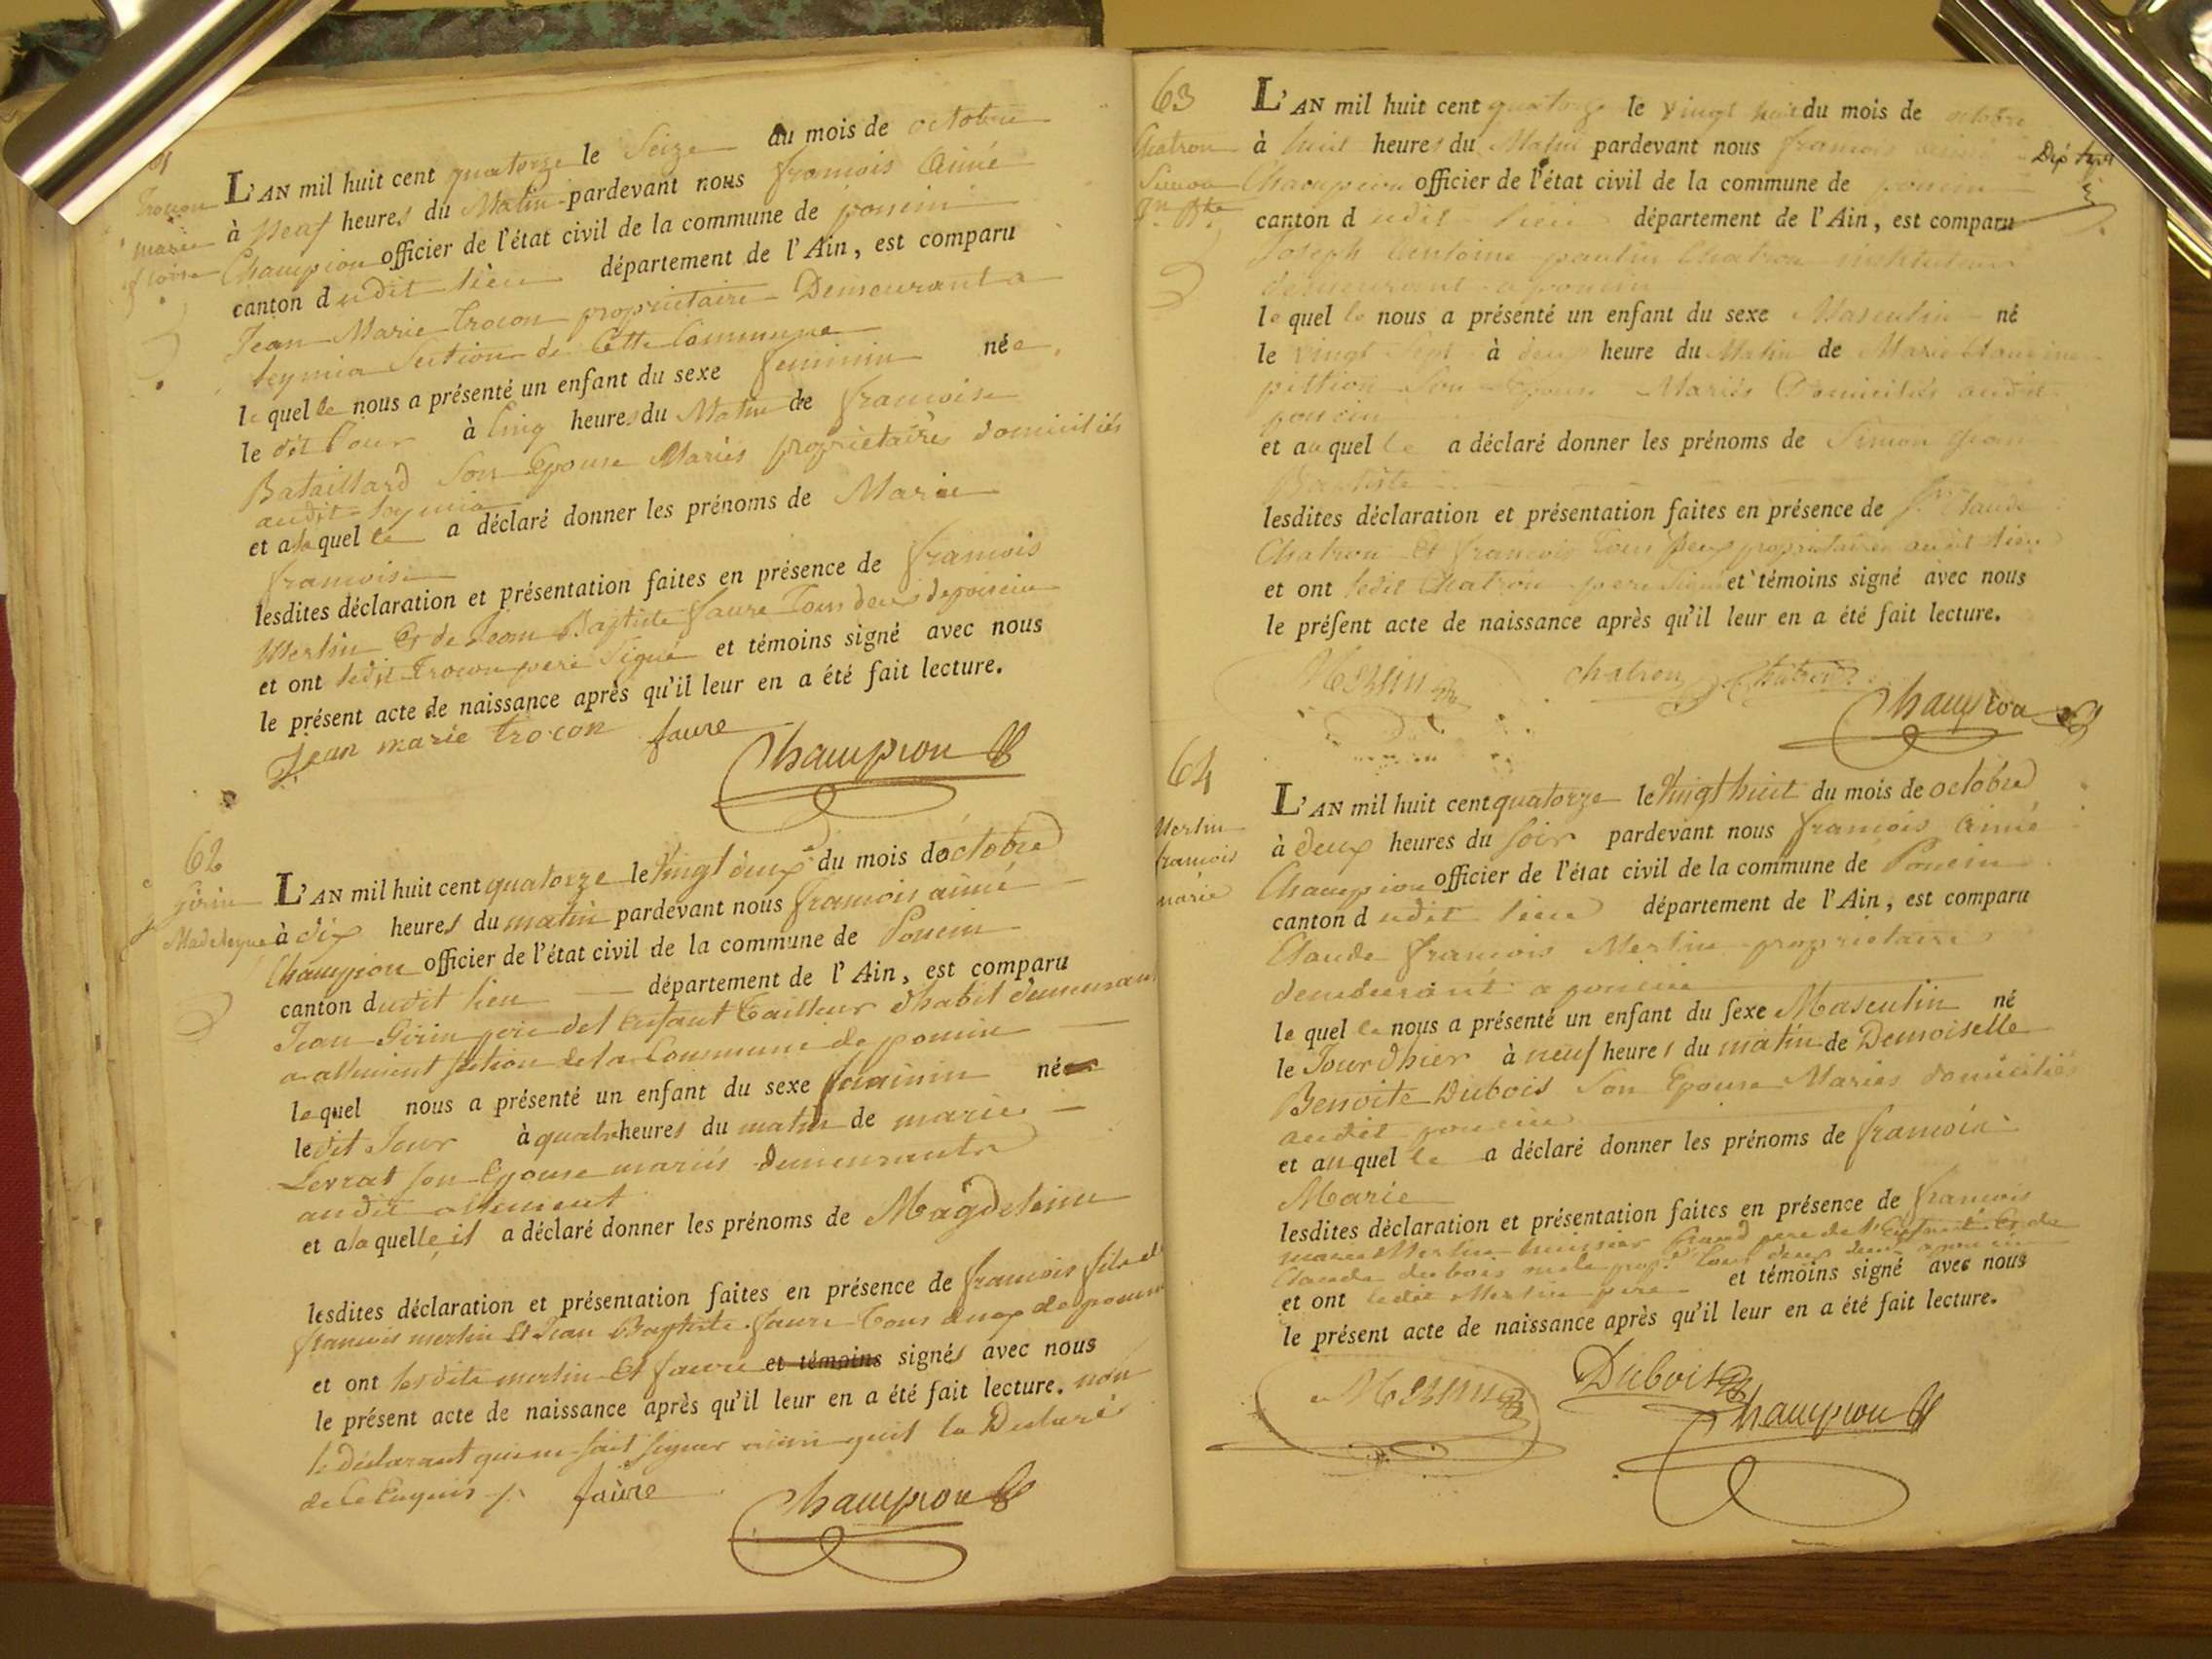 61
Trocon
marie
L'AN mil huit cent quatorze le Seize du mois de octobre
à Neuf heures du Matin pardevant nous francois Aimé
Champion officier de l'état civil de la commune de poncin
canton dudit lieu département de l'Ain, est comparu
Jean Marie Trocon propriétaire Demeurant a
leymia Section de Cette Commune
lequel le nous a présenté un enfant du sexe feminin née
le dit Jour à Cinq heures du Matin de francoise
Bataillard Son Epouse Mariés propriétaires domiciliés
audit leymia
et alaquel le a déclaré donner les prénoms de Marie
francoise
lesdites déclaration et présentation faites en présence de francois
Merlin Et de Jean Baptiste faure Tous deux de poncin
et ont ledit Trocon pere Signé et témoins signé avec nous
le présent acte de naissance après qu'il leur en a été fait lecture.
Jean marie trocon faure
Champion
62
Girin
Madeleyne
L'AN mil huit cent quatorze le Vingt deux du mois de octobre
à dix heures du matin pardevant nous francois aimé
Champion officier de l'état civil de la commune de Poncin
canton dudit lieu département de l'Ain, est comparu
Jean Girin pere del Enfant Tailleur dhabit demeurant
a allement section de la Commune de poncin
lequel nous a présenté un enfant du sexe feminin né
ledit Jour à quatre heures du matin de marie
Levrat son Epouse mariés demeurants
audit allement
et a la quelle il a déclaré donner les prénoms de Magdeleine
lesdites déclaration et présentation faites en présence de francois fils de
francois merlin Et Jean Baptiste faure Tous deux de poncin
et ont lesdits merlin Et faure et témoins signés avec nous
le présent acte de naissance après qu'il leur en a été fait lecture. non
le déclarant qui ne sait signer ainsi quil la Déclaré
de Ce Enquis faure
Champion
63
Chatron
Simon
Jn Bte
L'AN mil huit cent quatorze le vingt huit du mois de octobre
à huit heures du Matin pardevant nous francois aimé
Champion officier de l'état civil de la commune de poncin
canton dudit lieu département de l'Ain, est comparu
Joseph Antoine paulin Chatron instituteur
demeurant a poncin
lequel le nous a présenté un enfant du sexe Masculin né
le vingt Sept à deux heure du Matin de Marie Claudine
pittion Son Epouse Mariés Domiciliés audit
poncin
et auquel le a déclaré donner les prénoms de Simon Jean
Baptiste
lesdites déclaration et présentation faites en présence de Claude
Chatron Et francois Tous deux propriétaires audit lieu
et ont ledit Chatron pere Signé et témoins signé avec nous
le présent acte de naissance après qu'il leur en a été fait lecture.
Merlin chatron Chatron
Champion
64
Merlin
francois
marie
L'AN mil huit cent quatorze le Vingt huit du mois de octobre
à deux heures du Soir pardevant nous francois Aimé
Champion officier de l'état civil de la commune de Poncin
canton dudit lieu département de l'Ain, est comparu
Claude francois Merlin propriétaire
demeurant a poncin
lequel le nous a présenté un enfant du sexe Masculin né
le Jour dhier à neuf heures du matin de Demoiselle
Benoite Dubois Son Epouse Mariés domiciliés
audit poncin
et auquel le a déclaré donner les prénoms de francois
Marie
lesdites déclaration et présentation faites en présence de francois
marie Merlin huissier Grand pere de l'Enfant Et de
Claude dubois Tous deux a poncin
et ont ledit Merlin pere et témoins signé avec nous
le présent acte de naissance après qu'il leur en a été fait lecture.
Merlin Dubois
Champion